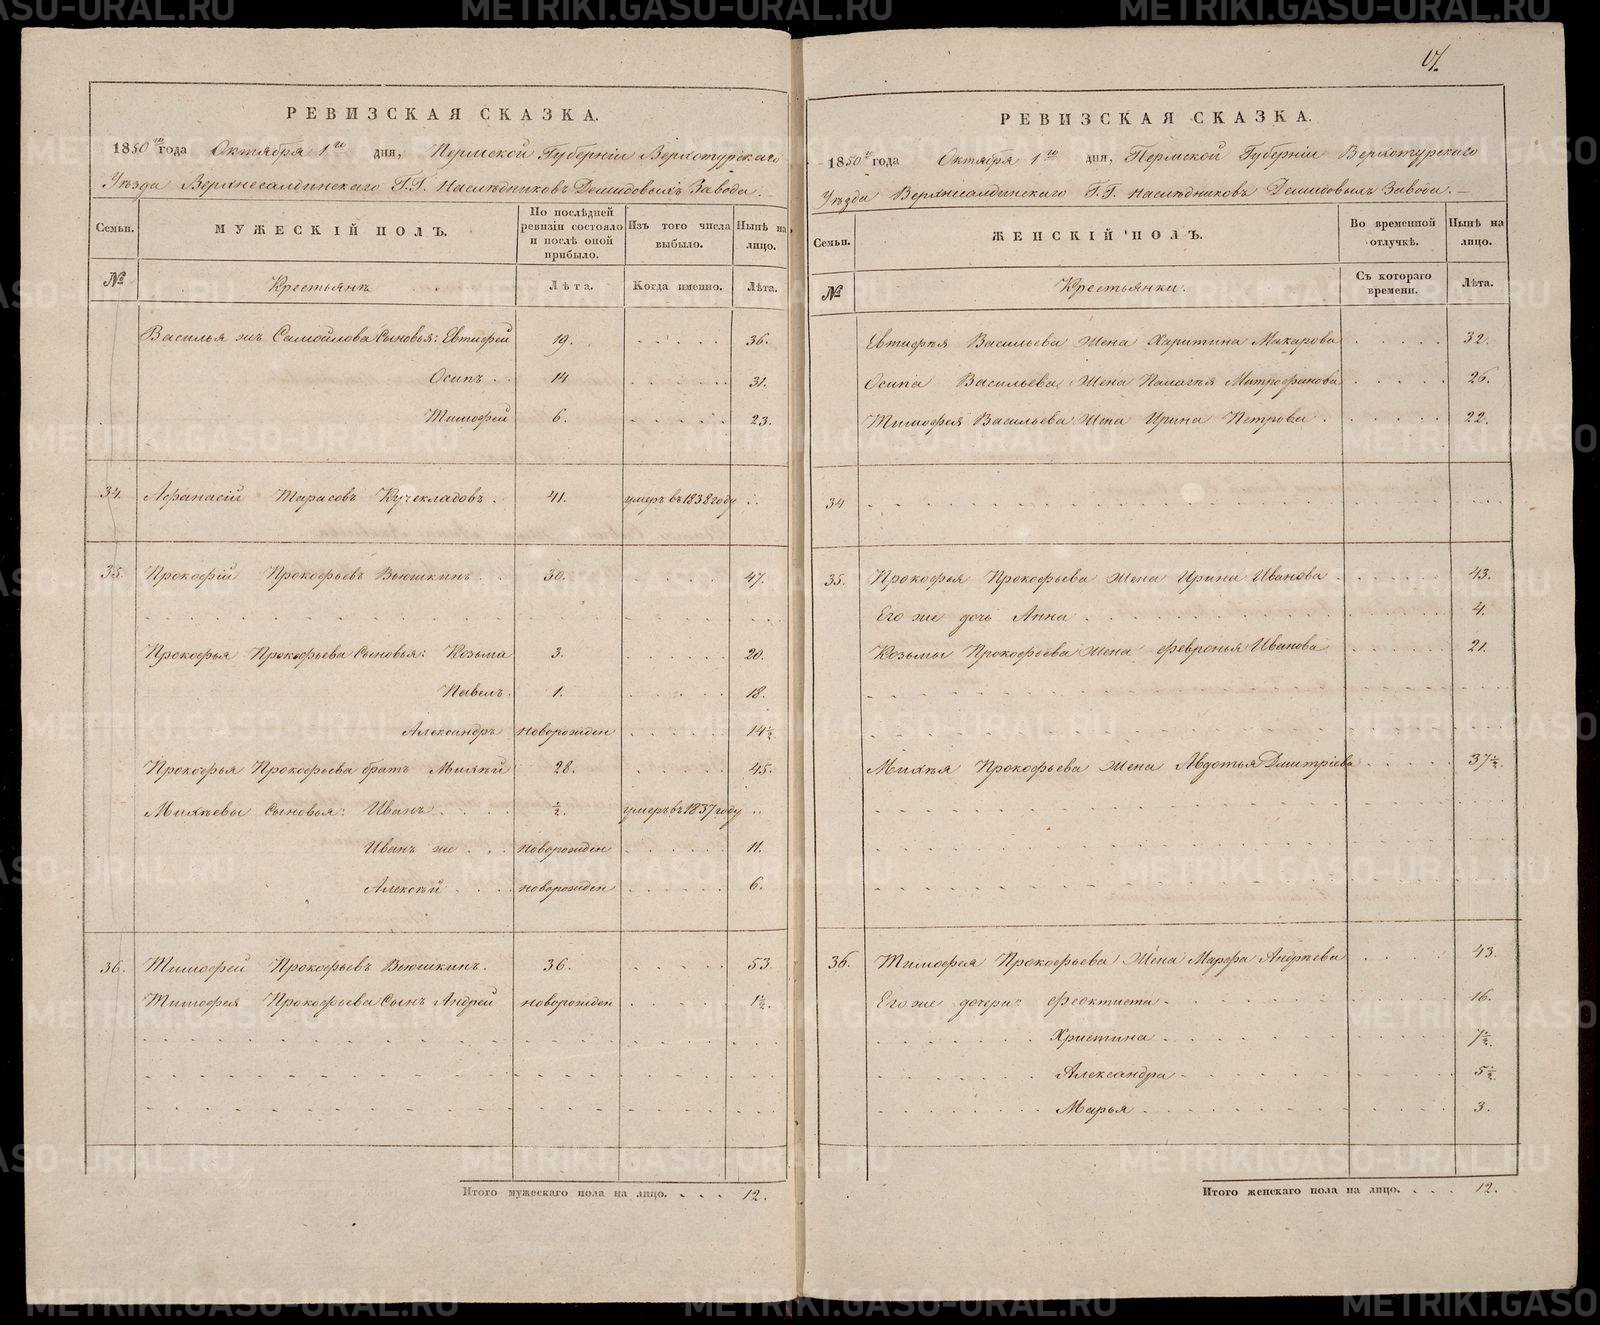 17.
РЕВИЗСКАЯ СКАЗКА.
1850го года Октября 1го дня, Пермской Губерніи Верхотурскаго
Уѣзда Верхнесалдинскаго Г.Г. Наслѣдниковъ Демидовыхъ Завода.
Семьи. МУЖЕСКІЙ ПОЛЪ. По послѣдней ревизіи состояло и послѣ оной прибыло. Изъ того числа выбыло. Нынѣ на лицо.
№ Крестьянъ Лѣта. Когда именно. Лѣта.
Василья жъ Самойлова Сыновья: Евтифей 19. 36.
Осипъ 14 31.
Тимофей 6. 23.
34. Афанасій Тарасовъ Кучекладовъ. 41. умеръ въ 1838 году
35. Прокофій Прокофьевъ Вьюшкинъ 30. 47.
Прокофья Прокофьева Сыновья: Козьма 3. 20.
Павелъ. 1. 18.
Александръ новорожден 14½.
Прокофья Прокофьева братъ Михѣй 28. 45.
Михѣевы Сыновья: Иванъ ½. умеръ въ 1837 году
Иванъ же новорожден 11.
Алексѣй новорожден 6.
36. Тимофей Прокофьевъ Вьюшкинъ. 36. 53.
Тимофея Прокофьева Сынъ Андрей новорожден 1½.
Итого мужескаго пола на лицо. 12.
РЕВИЗСКАЯ СКАЗКА.
1850го года Октября 1го дня, Пермской Губерніи Верхотурскаго
Уѣзда Верхнесалдинскаго Г.Г. Наслѣдниковъ Демидовыхъ Завода.
Семьи. ЖЕНСКІЙ ПОЛЪ. Во временной отлучкѣ. Нынѣ на лицо.
№ Крестьянки. Съ котораго времени. Лѣта.
Евтифѣя Васильева Жена Харитина Макарова 32.
Осипа Васильева Жена Палагѣя Митрофанова 26.
Тимофея Васильева Жена Ирина Петрова 22.
34
35. Прокофья Прокофьева Жена Ирина Иванова 43.
Его же дочь Анна 4.
Козьмы Прокофьева Жена Февронья Иванова 21.
Михѣя Прокофьева Жена Авдотья Дмитріева 37½.
36. Тимофея Прокофьева Жена Марфа Андрѣева 43.
Его же дочери: Феоктиста 16.
Христина 7½.
Александра 5½.
Марья 3.
Итого женскаго пола на лицо. 12.
METRIKI.GASO-URAL.RU